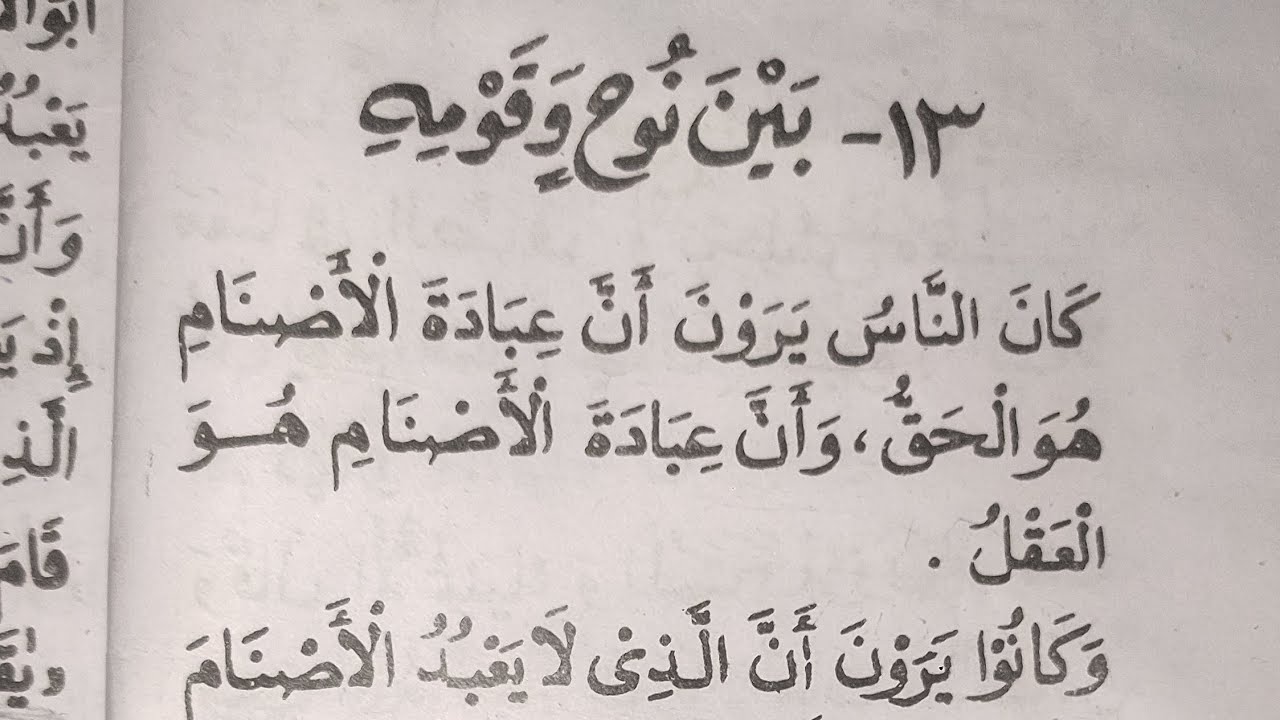 ١٣- بَيْنَ نُوحٍ وَقَوْمِهِ
كَانَ النَّاسُ يَرَوْنَ أَنَّ عِبَادَةَ الْأَصْنَامِ
هُوَ الْحَقُّ، وَأَنَّ عِبَادَةَ الْأَصْنَامِ هُـــوَ
الْعَقْلُ .
وَكَانُوْا يَرَوْنَ أَنَّ الَّذِىْ لَا يَعْبُدُ الْأَصْنَامَ